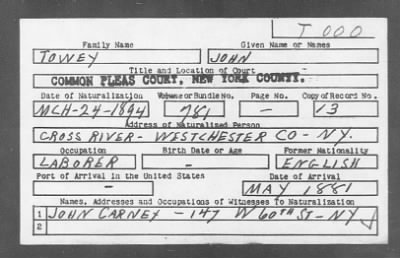 T 000
Family Name Given Name or Names
TOWEY JOHN
Title and Location of Court
COMMON PLEAS COURT, NEW YORK COUNTY.
Date of Naturalization Volume or Bundle No. Page No. Copy of Record No.
MCH-24-1894 781 - 13
Address of Naturalized Person
CROSS RIVER - WESTCHESTER CO - NY.
Occupation Birth Date or Age Former Nationality
LABORER - ENGLISH
Port of Arrival in the United States Date of Arrival
- MAY 1881
Names, Addresses and Occupations of Witnesses To Naturalization
1 JOHN CARNEY - 147 W 60TH ST - NY
2